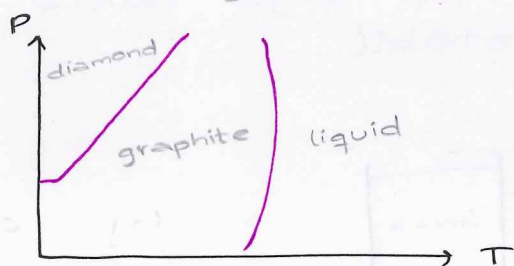 P
diamond
graphite
liquid
T